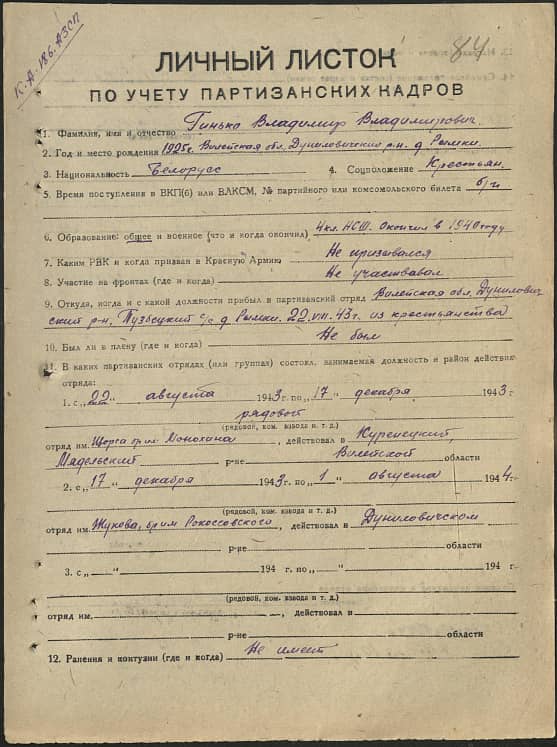 К.А-186. АЗСП
84
ЛИЧНЫЙ ЛИСТОК
ПО УЧЕТУ ПАРТИЗАНСКИХ КАДРОВ
1. Фамилия, имя и отчество Гинько Владимир Владимирович.
2. Год и место рождения 1925г. Вилейская обл. Дуниловичский р-н. д Рымки.
3. Национальность Белорусс 4. Соцположение Крестьян.
5. Время поступления в ВКП(б) или ВЛКСМ, № партийного или комсомольского билета б/п
6. Образование: общее и военное (что и когда окончил) 4 кл. НСШ. Окончил в 1940 году
7. Каким РВК и когда призван в Красную Армию Не призывался
8. Участие на фронтах (где и когда) Не участвовал
9. Откуда, когда и с какой должности прибыл в партизанский отряд Вилейская обл. Дунилович
ский р-н. с/с д Рымки. 22.VIII.43г. из крестьянства
10. Был ли в плену (где и когда) Не был
11. В каких партизанских отрядах (или группах) состоял, занимаемая должность и район действия
отряда:
1. с „22" августа 1943 г. по „17" декабря 1943 г
рядовой
(рядовой, ком. взвода и т. д.)
отряд им. Щорса бр им. , действовал в Куренецкий,
Мядельский р-не Вилейской области
2. с „17" декабря 1943 г. по „1" августа 1944 г.
(рядовой, ком. взвода и т. д.)
отряд им. Жукова, бр им Рокоссовского, действовал в Дуниловичском
р-не области
3. с „ " 194 г. по „ " 194 г
(рядовой, ком. взвода и т. д.)
отряд им. , действовал в
р-не области
12. Ранения и контузии (где и когда) Не имеет